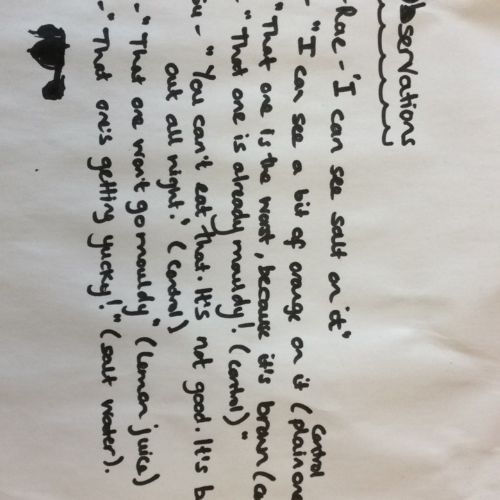 Observations
-Rae - "I can see salt on it"
- "I can see a bit of orange on it (plain one
Control
"That one is the worst, because it's brown (
- "That one is already mouldy! (control)"
- "You can't eat that. It's not good. It's
out all night." (Control)
- "That one won't go mouldy" (lemon juice)
- "That one's getting yucky!" (salt water).